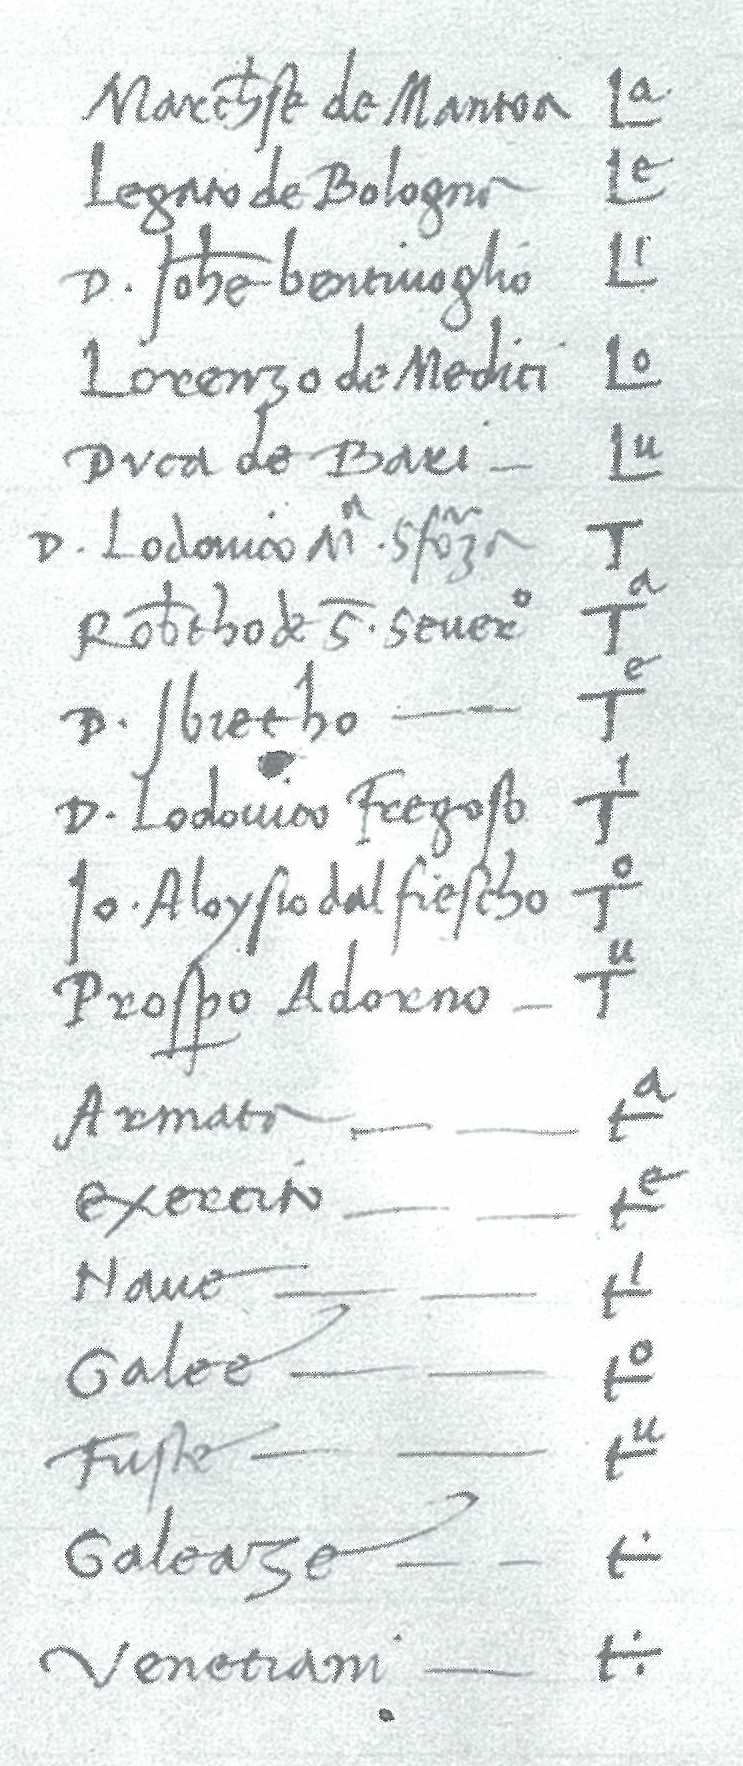 Marchese de Mantoa Lᵃ
Legato de Bologna Lᵉ
D. Johe bentiuoglio Lⁱ
Lorenzo de Medici Lᵒ
Duca de Bari — Lᵘ
D. Lodouico Mᵃ. Sforza T
Robertho de S. Seuerᵒ Tᵃ
D. Ibietho — Tᵉ
D. Lodouico Fregoso Tⁱ
Jo. Aloysio dal fiescho Tᵒ
Prospo Adorno — Tᵘ
Armata — — tᵃ
exercito — — tᵉ
Naue — — tⁱ
Galee — — tᵒ
Fuste — — tᵘ
Galeaze — — t·
Venetiani — t: